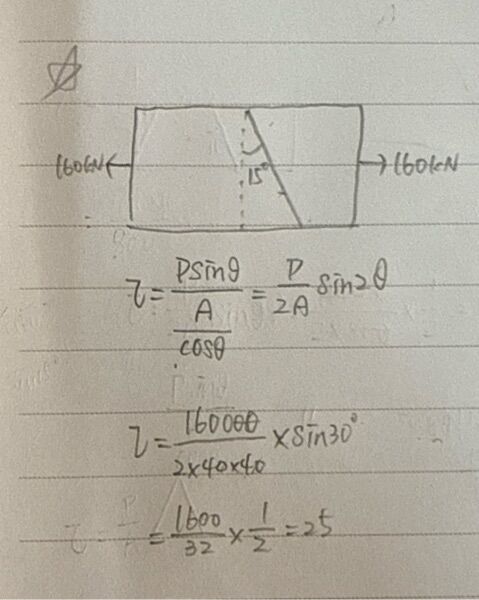 160kN 15° 160kN
τ = Psinθ / (A / cosθ) = P / 2A sin2θ
τ = 160000 / 2×40×40 × sin30°
= 1600 / 32 × 1 / 2 = 25